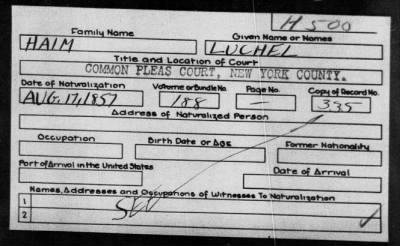 H 500
Family Name Given Name or Names
HAIM LUCHEL
Title and Location of Court
COMMON PLEAS COURT, NEW YORK COUNTY.
Date of Naturalization Volume or Bundle No. Page No. Copy of Record No.
AUG. 17, 1857 188 — 335
Address of Naturalized Person
Occupation Birth Date or Age Former Nationality
Port of Arrival in the United States Date of Arrival
Names, Addresses and Occupations of Witnesses To Naturalization
1
2